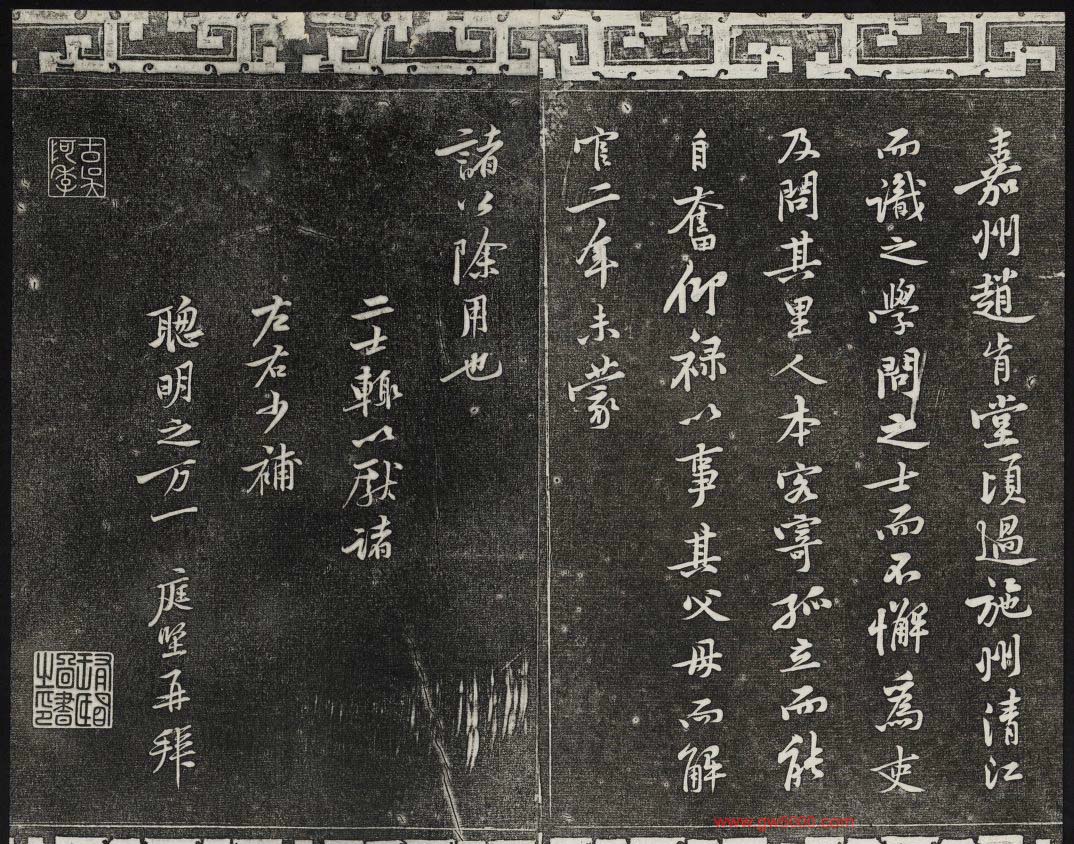 嘉州趙肯堂頃過施州清江
而識之學問之士而不懈為吏
及問其里人本客寄孤立而能
自奮仰禄以事其父母而解
官二年未蒙
諸公除用也
二士輒以厭諸
左右少補
聰明之万一 庭堅再拜
www.gw0000.com